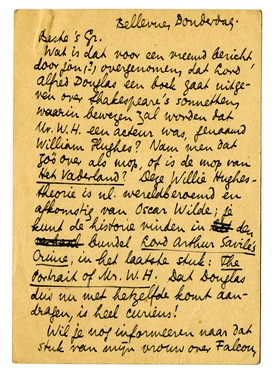 Bellevue, Donderdag.
Beste 's Gr.
Wat is dat voor een vreemd bericht
door jou (?) overgenomen, dat Lord
Alfred Douglas een boek gaat uitge-
ven over Shakespeare's sonnetten,
waarin bewezen zal worden dat
Mr. W.H. een acteur was, genaamd
William Hughes? Nam men dat
zóó over als mop, of is de mop van
Het Vaderland? Deze Willie Hughes-
theorie is nl. wereldberoemd en
afkomstig van Oscar Wilde; je
kunt de historie vinden in den
bundel Lord Arthur Savile's
Crime, in het laatste stuk: The
Portrait of Mr. W.H. Dat Douglas
dus nu met hetzelfde komt aan-
dragen, is heel curieus!
Wil je nog informeeren naar dat
stuk van mijn vrouw over Falcon,